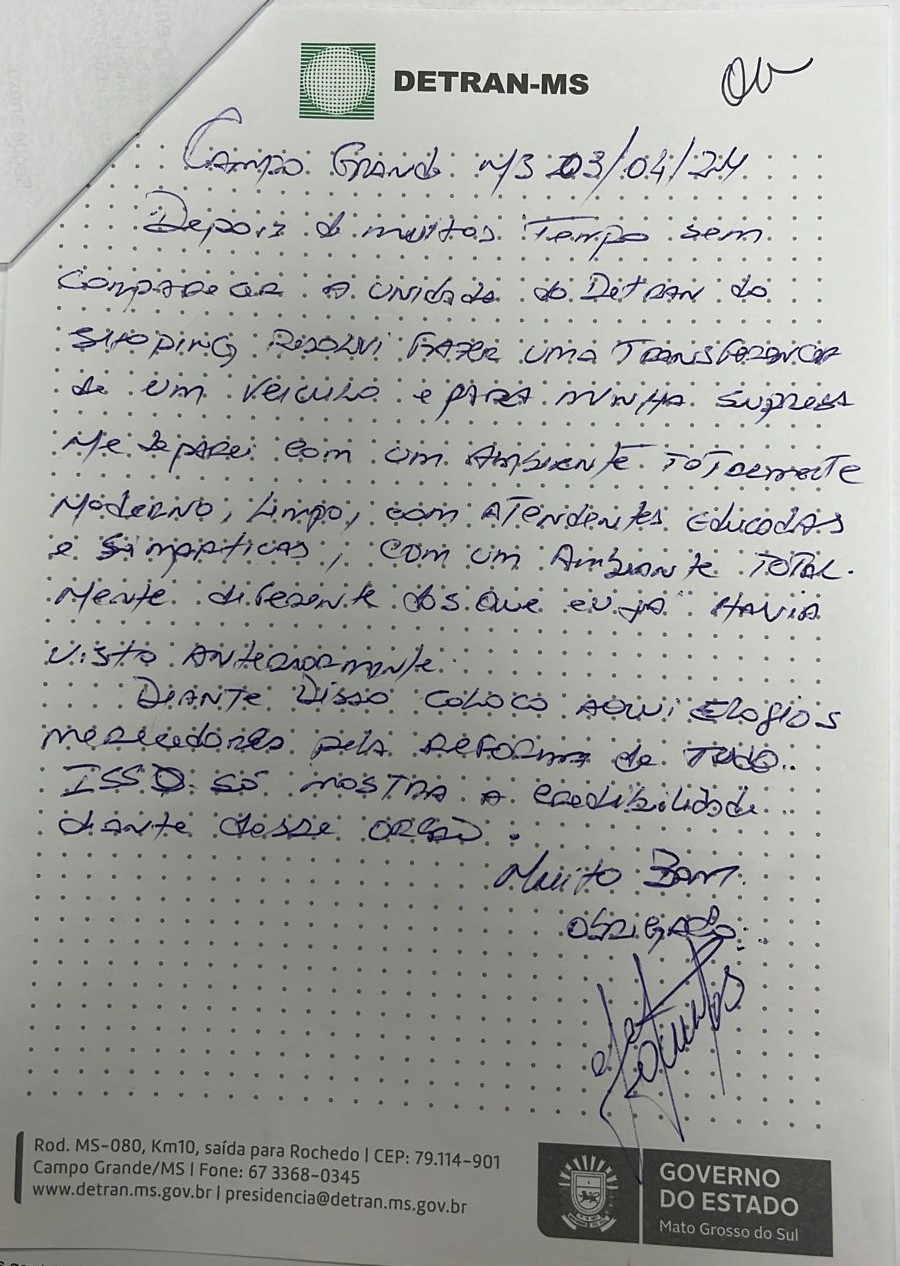 DETRAN-MS
Campo Grande M/S 03/04/24
Depois de muitos Tempo sem
comparecer a unidade do Detran do
shopping Resolvi fazer uma Transferencia
de um veiculo e para minha surpresa
Me deparei com um Ambiente totalmente
Moderno, Limpo, com Atendentes Educadas
e simpaticas, com um Ambiente Total.
Mente diferente dos que eu já havia
visto Anteriormente.
Diante Disso coloco Aqui Elogios
merecedores pela Reforma de Tudo.
ISSO só mostra a credibilidade
diante desse orgão.
Muito Bom.
Obrigado.
Rod. MS-080, Km10, saída para Rochedo | CEP: 79.114-901
Campo Grande/MS | Fone: 67 3368-0345
www.detran.ms.gov.br | presidencia@detran.ms.gov.br
GOVERNO
DO ESTADO
Mato Grosso do Sul